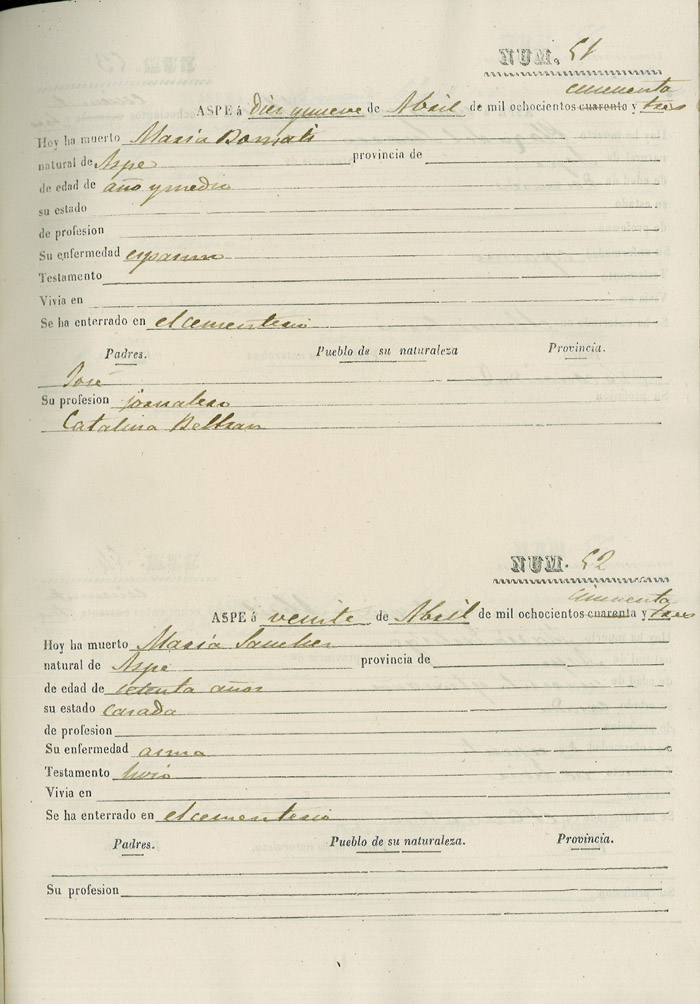 NUM. 51
cincuenta
ASPE á Diez y nueve de Abril de mil ochocientos cuarenta y tres
Hoy ha muerto Maria
natural de Aspe provincia de
de edad de año y medio
su estado
de profesion
Su enfermedad
Testamento
Vivia en
Se ha enterrado en el cementerio
Padres. Pueblo de su naturaleza Provincia.
José
Su profesion jornalero
Catalina Beltran
NUM. 52
cincuenta
ASPE á veinte de Abril de mil ochocientos cuarenta y tres
Hoy ha muerto Maria Sanchez
natural de Aspe provincia de
de edad de setenta años
su estado casada
de profesion
Su enfermedad asma
Testamento hizo
Vivia en
Se ha enterrado en el cementerio
Padres. Pueblo de su naturaleza. Provincia.
Su profesion